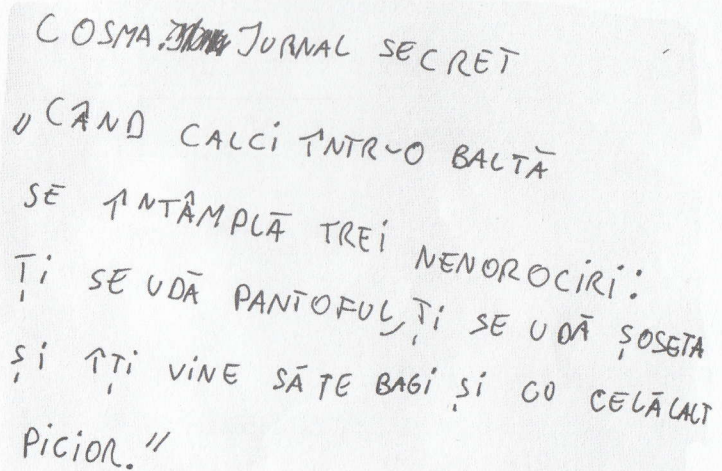 COSMA. JURNAL SECRET
„CÂND CALCI ÎNTR-O BALTĂ
SE ÎNTÂMPLĂ TREI NENOROCIRI:
ȚI SE UDĂ PANTOFUL, ȚI SE UDĂ ȘOSETA
ȘI ÎȚI VINE SĂ TE BAGI ȘI CU CELĂLALT
PICIOR."